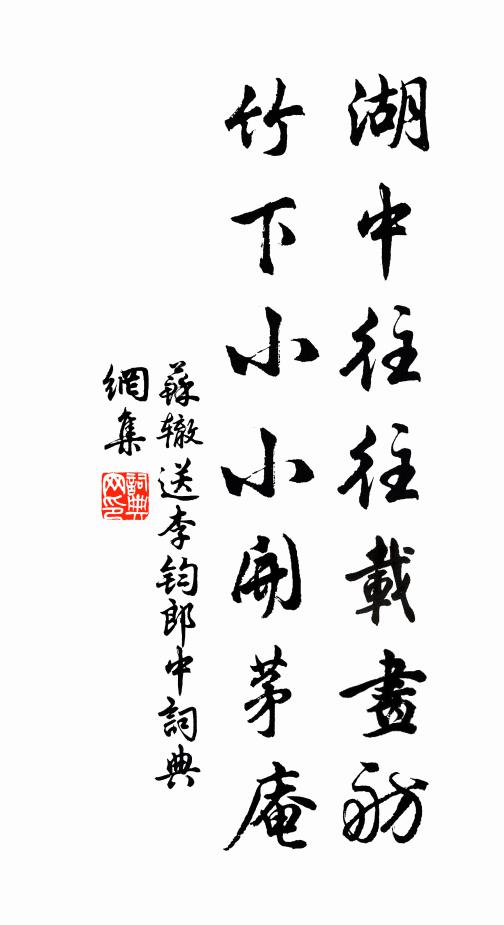 湖中往往載畫舫
竹下小小開茅庵
蘇辙送李钧郎中詞典
網集
詞典
网印